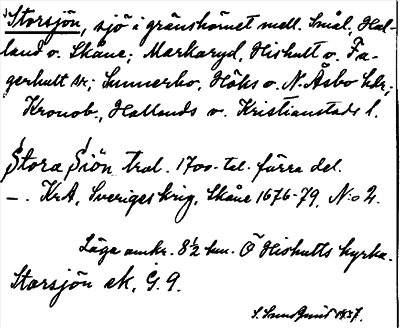 Storsjön, sjö i gränshörnet mell. Smål., Hal-
land o. Skåne; Markaryd, Hishult o. Fa-
gerhult sn; Sunnerbo, Höks o. N. Åsbo hdr;
Kronob., Hallands o. Kristianstads l.
Stora Siön trol. 1700-tal. förra del.
–. KrA, Sveriges krig, Skåne 1676-79, N:o 2.
Läge omkr. 8½ km. Ö Hishults kyrka.
Storsjön ek, G. 9.
1937.